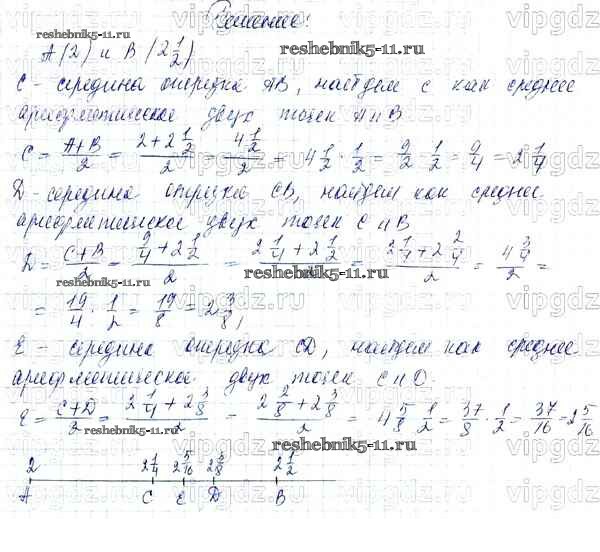 Решение:
reshebnik5-11.ru
A(2) и B(2 1/2)
C - середина отрезка AB, найдем C как среднее
арифметическое двух точек A и B
C = A+B/2 = 2+2 1/2 / 2 = 4 1/2 / 2 = 4 1/2 · 1/2 = 9/2 · 1/2 = 9/4 = 2 1/4
D - середина отрезка CB, найдем как среднее
арифметическое двух точек C и B
D = C+B/2 = 9/4 + 2 1/2 / 2 = 2 1/4 + 2 1/2 / 2 = 2 1/4 + 2 2/4 / 2 = 4 3/4 / 2 =
reshebnik5-11.ru
= 19/4 · 1/2 = 19/8 = 2 3/8,
E - середина отрезка CD, найдем как среднее
арифметическое двух точек C и D.
E = C+D/2 = 2 1/4 + 2 3/8 / 2 = 2 2/8 + 2 3/8 / 2 = 4 5/8 · 1/2 = 37/8 · 1/2 = 37/16 = 2 5/16
reshebnik5-11.ru
reshebnik5-11.ru
2 2 1/4 2 5/16 2 3/8 2 1/2
A C E D B
reshebnik5-11.ru
vipgdz.ru